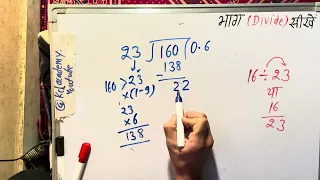 भाग (Divide) सीखें
23 ) 160 ( 0.6
138
22
160 > 23
×(1-9)
23
×6
138
16 ÷ 23
या
16
23
@ Kclacademy
Youtube